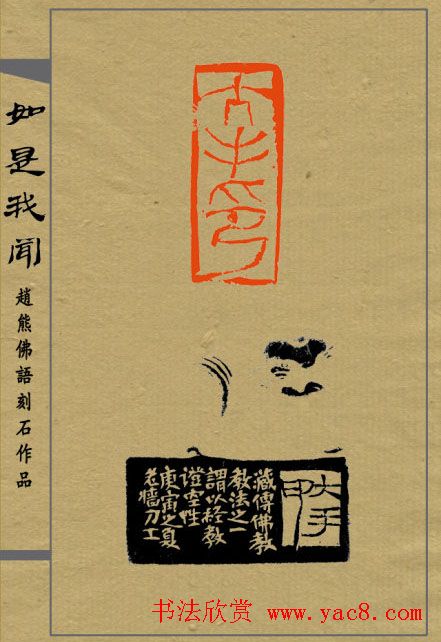 如是我聞
趙熊佛語刻石作品
大手印
大手印
藏傳佛教
教法之一
謂以經教
證空性
庚寅之夏
老牆刀工
书法欣赏 www.yac8.com